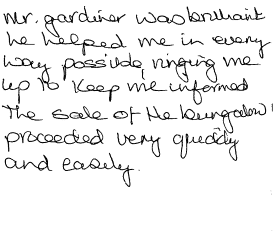 Mr. gardiner was brilliant
he helped me in every
way possible, ringing me
up to keep me informed
The sale of the bungalow
proceeded very quickly
and easily.